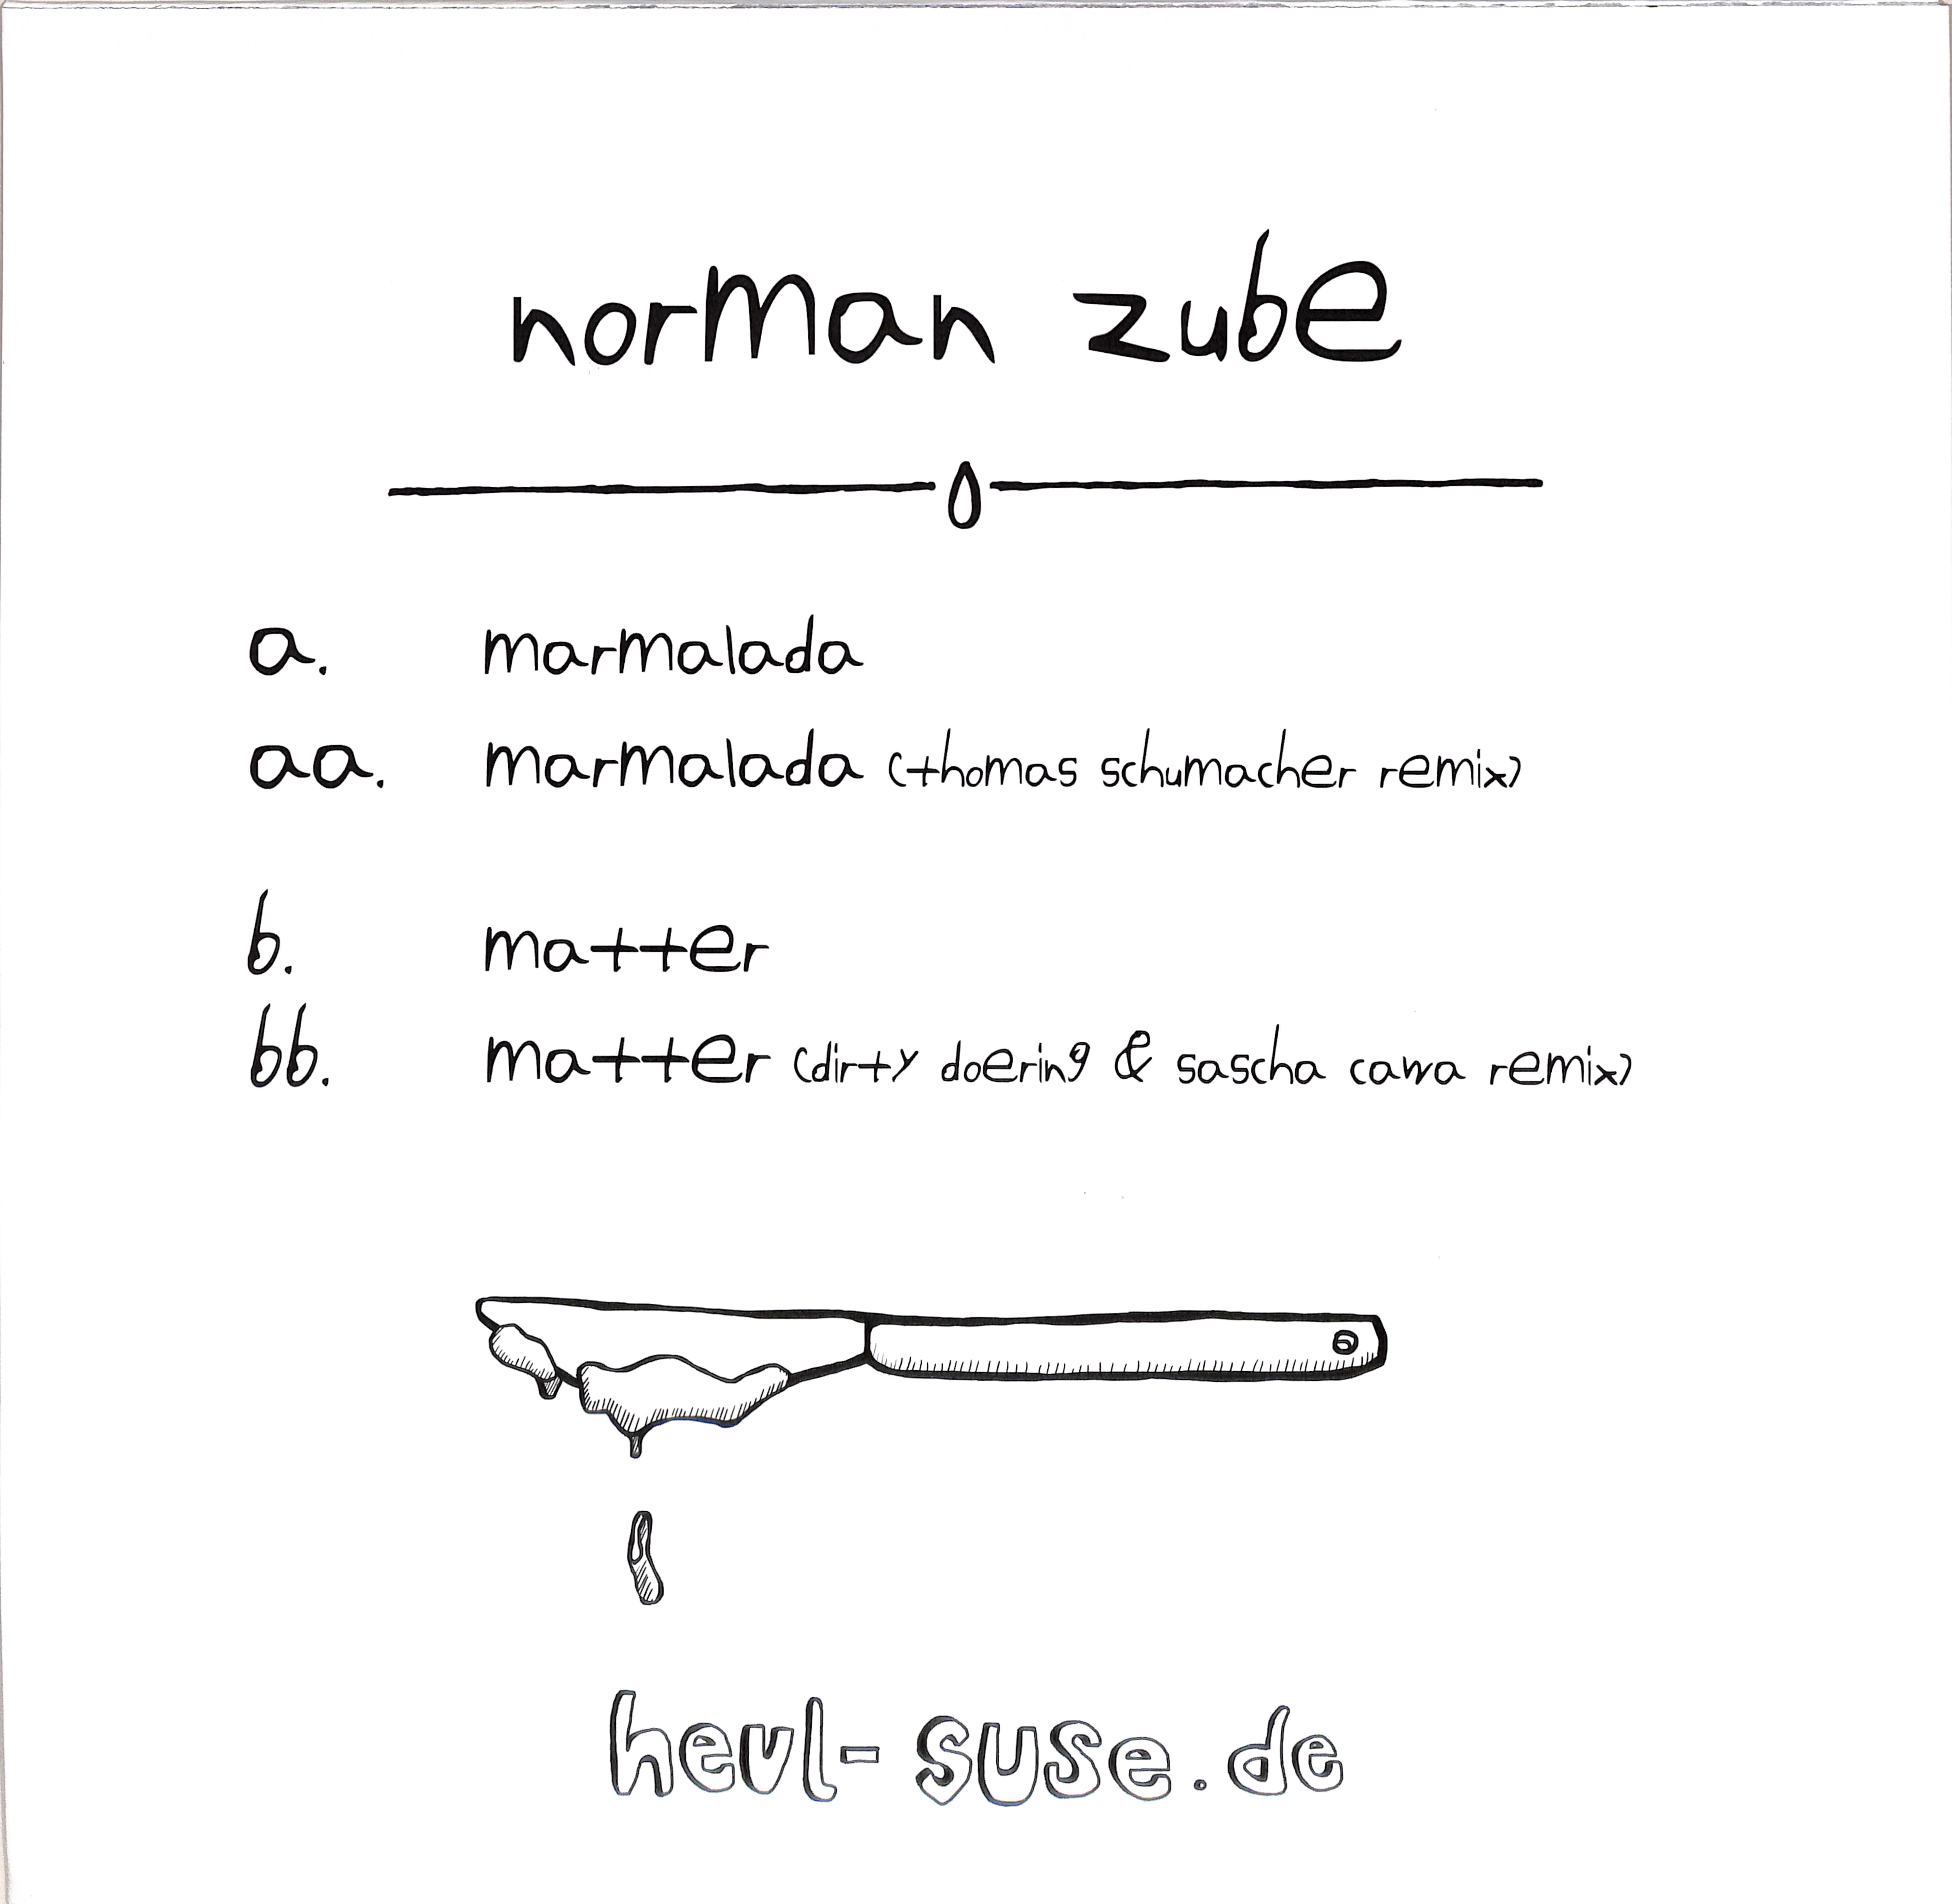 norman zube
a. marmalada
aa. marmalada (thomas schumacher remix)
b. matter
bb. matter (dirty doering & sascha cawa remix)
heul-suse.de